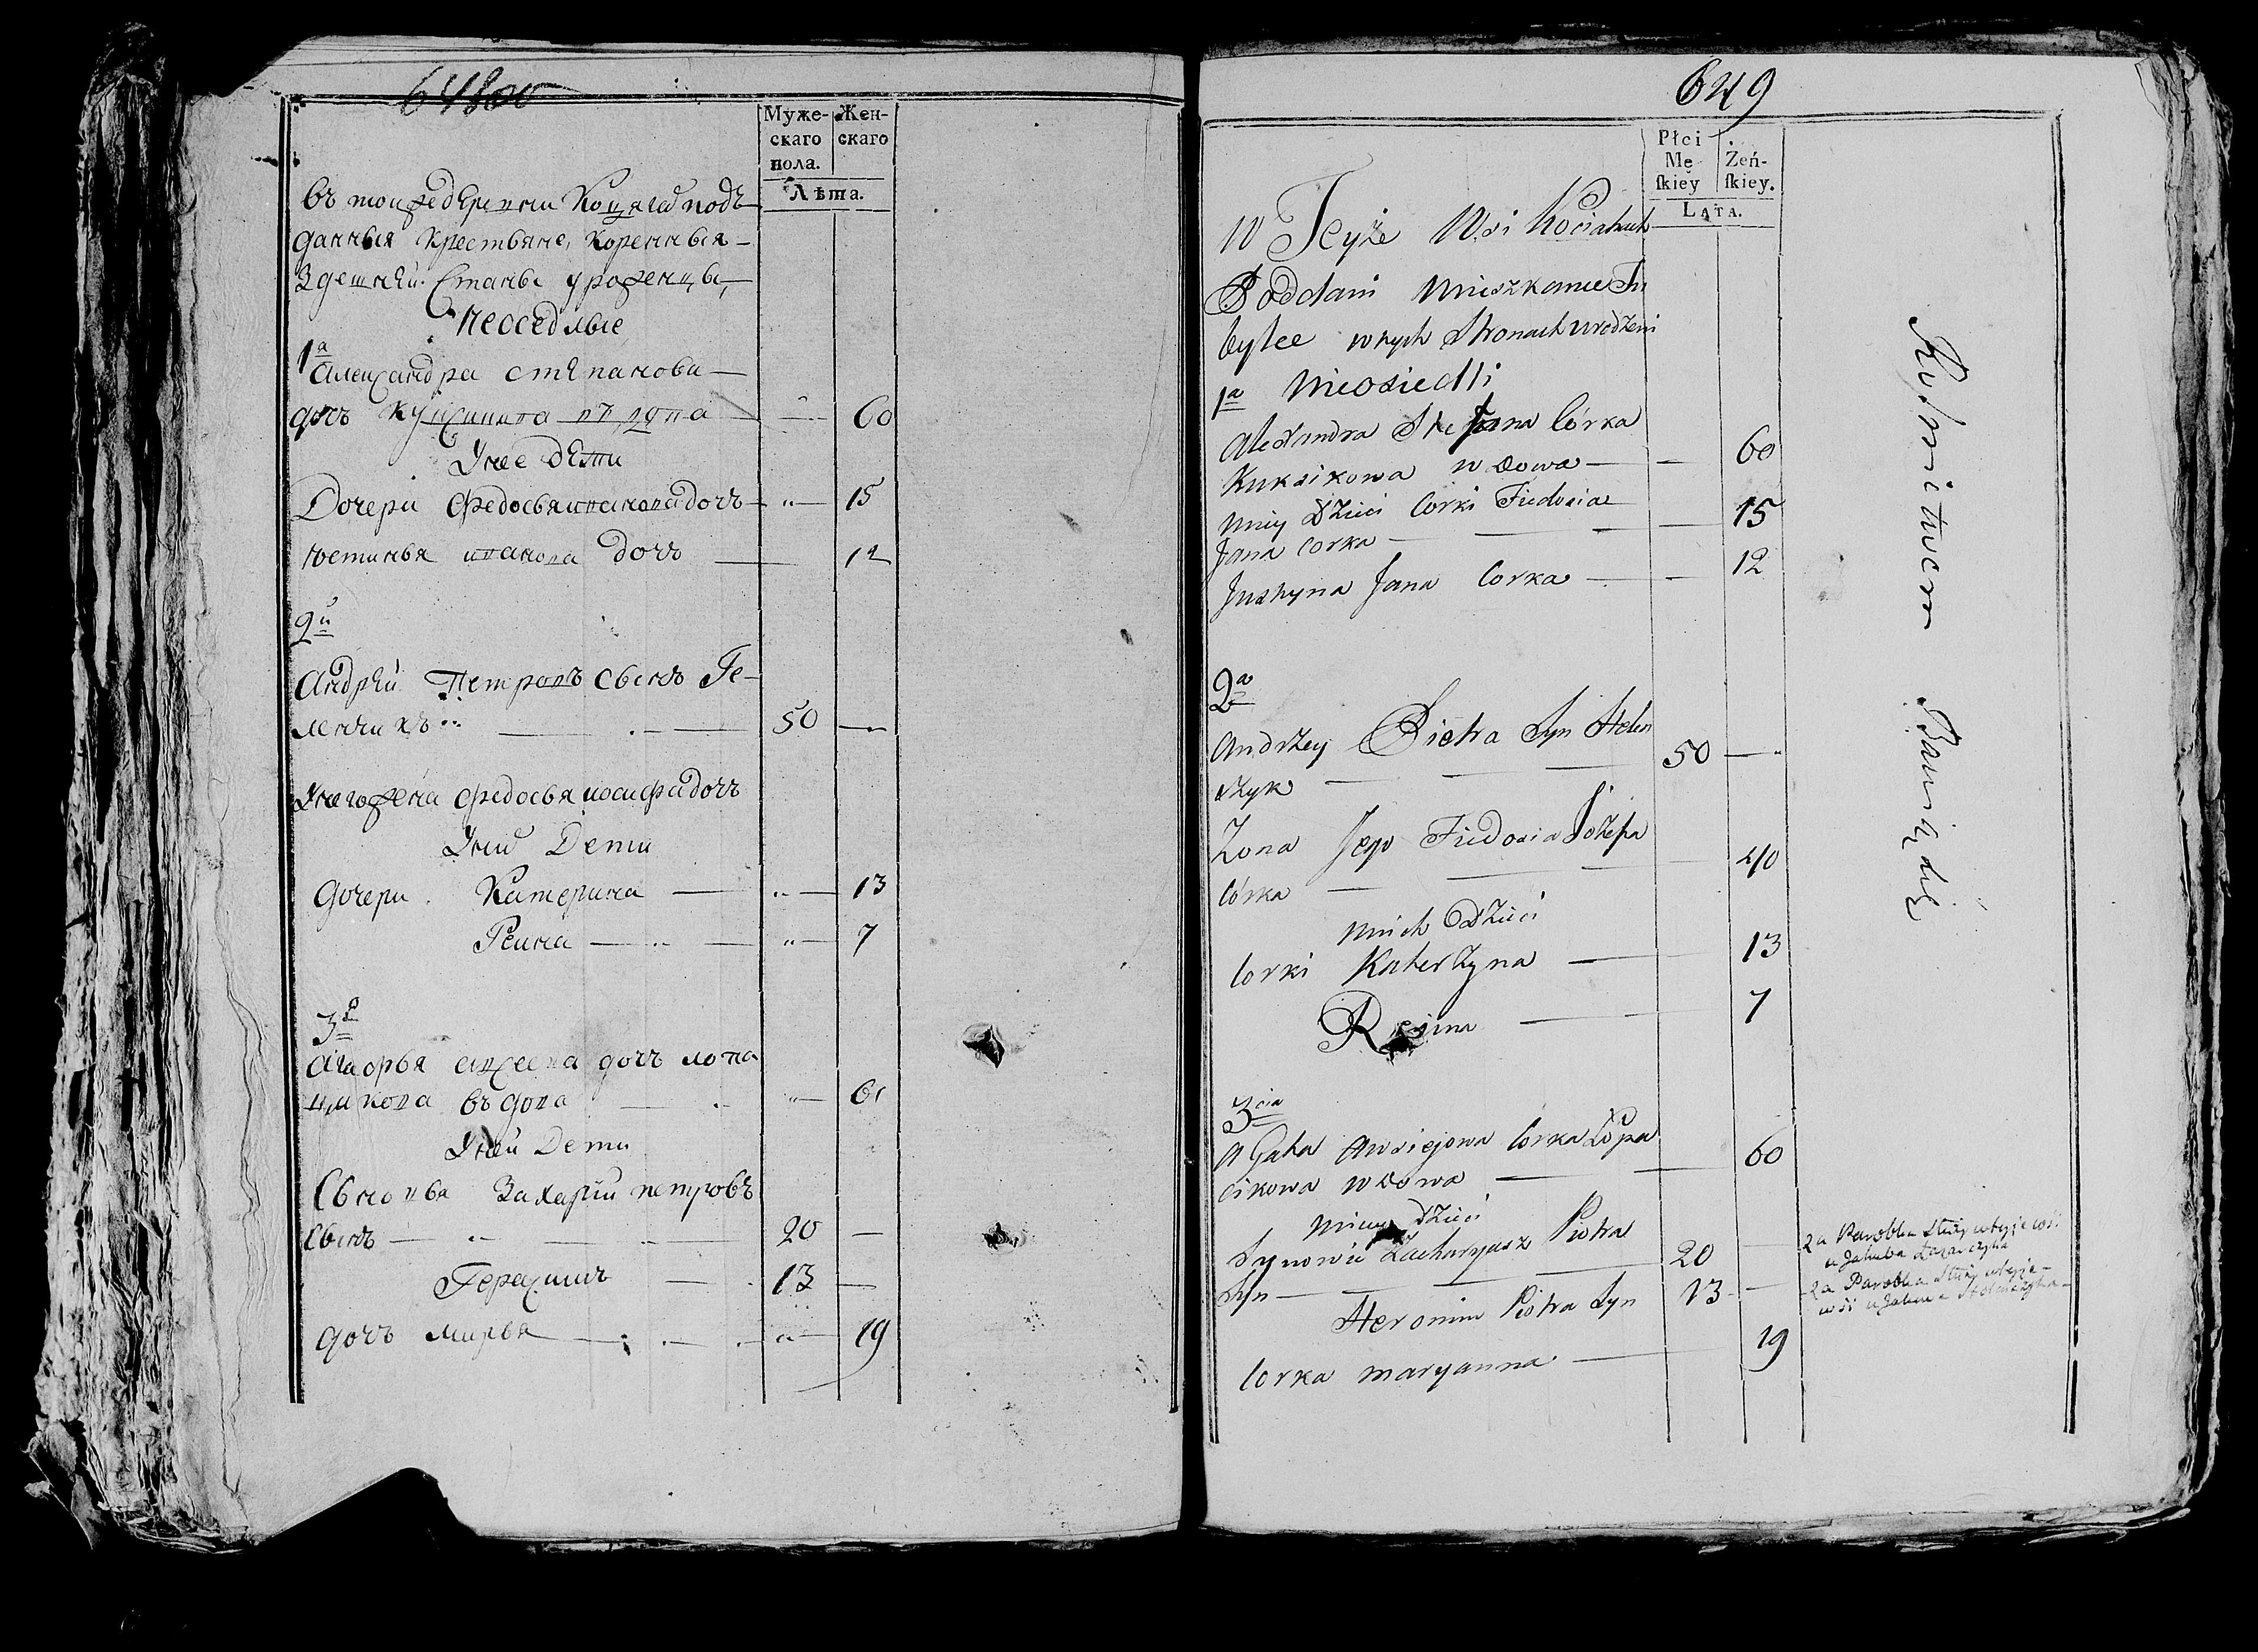 648
Муже-
скаго
пола.
Жен-
скаго
Лѣта.
въ той же деревни Коцягах подъ
данныя крестьяне, коренныя
здешней Стамы уроженцы,
неоседлые
1а
Александра степанова
дочь въдова — 60
У нее дети
Дочери Федосья иванова дочь — " — 15
иванова дочь — 12
2й
Андрей Петровъ сынъ Ге-
ленчикъ — 50 —
У него жена Федосья иосифа дочь
У них Дети
дочери Катерина — " — 13
Реина — " — 7
3я
дочь лопа
цикова въдова — " —
У ней Дети
Сыновья Захарий петровъ
сынъ — 20 —
Герасимъ — 13 —
дочь марья — " — 19
649
Płci
Mę
skiey
Żeń-
skiey.
LATA.
W Teyże Wsi Kociahach
Poddani Mieszkance Tu
bylce w tych Stronach urodzeni
1a Nieosiedli
Alexandra Stefana Córka
Kuksikowa wdowa — — 60
Mniey Dzieci Corki Fiedosia
Jana Corka — — 15
Justyna Jana Corka — — 12
2a
Andrzey Pietra Syn Helen
czyk — 50 —
Zona Jego Fiedosia Jozefa
Córka — 40
Mnich Dzieci
Corki Katerzyna — 13
Regina — 7
3cia
Agata Awsiejowa Corka Łopa
cikowa wdowa — 60
Mniey dzieci
Synowie Zacharyasz Piotra
Syn — 20 —
Heronim Piotra Syn 13 —
Corka Maryanna — 19
za Parobka Służy w teyże wsi
u Jakuba
za Parobka Służy w teyże
wsi u